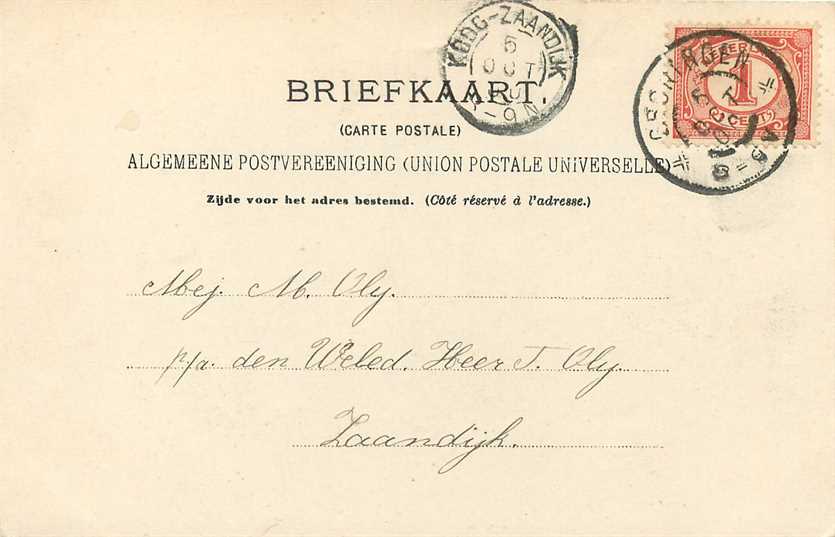 KOOG-ZAANDIJK
5
OCT
GRONINGEN
1
BRIEFKAART.
(CARTE POSTALE)
ALGEMEENE POSTVEREENIGING (UNION POSTALE UNIVERSELLE)
Zijde voor het adres bestemd. (Côté réservé à l'adresse.)
Mej. M. Oly.
p/a. den Weled. Heer T. Oly.
Zaandijk.